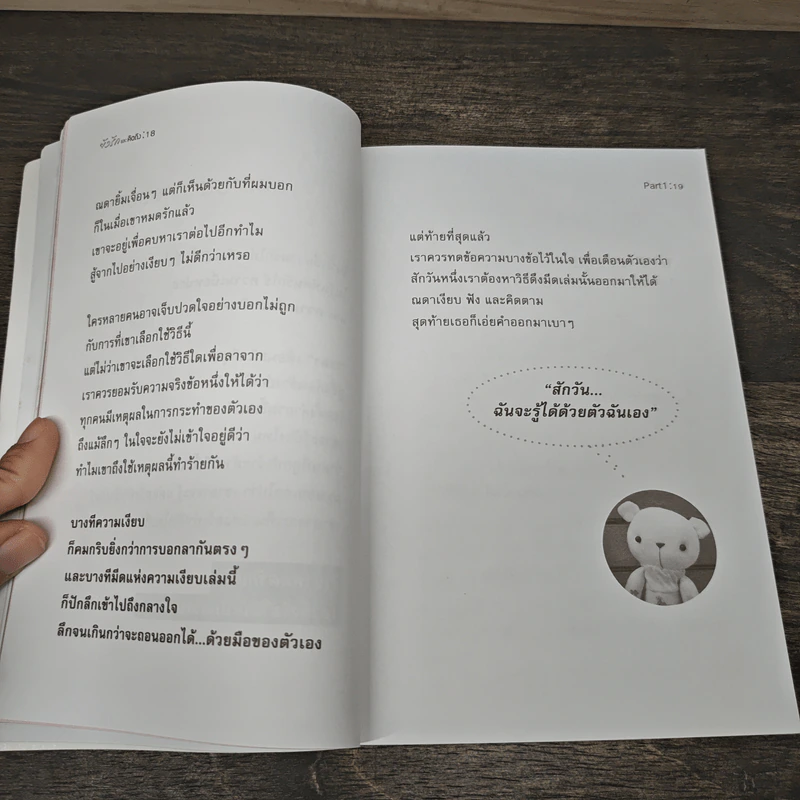 คิดถึง : 18
ณดายิ้มเจื่อนๆ แต่ก็เห็นด้วยกับที่ผมบอก
ก็ในเมื่อเขาหมดรักแล้ว
เขาจะอยู่เพื่อคบหาเราต่อไปอีกทำไม
สู้จากไปอย่างเงียบๆ ไม่ดีกว่าเหรอ
ใครหลายคนอาจเจ็บปวดใจอย่างบอกไม่ถูก
กับการที่เขาเลือกใช้วิธีนี้
แต่ไม่ว่าเขาจะเลือกใช้วิธีใดเพื่อลาจาก
เราควรยอมรับความจริงข้อหนึ่งให้ได้ว่า
ทุกคนมีเหตุผลในการกระทำของตัวเอง
ถึงแม้ลึกๆ ในใจจะยังไม่เข้าใจอยู่ดีว่า
ทำไมเขาถึงใช้เหตุผลนี้ทำร้ายกัน
บางทีความเงียบ
ก็คมกริบยิ่งกว่าการบอกลากันตรงๆ
และบางทีมีดแห่งความเงียบเล่มนี้
ก็ปักลึกเข้าไปถึงกลางใจ
ลึกจนเกินกว่าจะถอนออกได้...ด้วยมือของตัวเอง
Part1 : 19
แต่ท้ายที่สุดแล้ว
เราควรทดข้อความบางข้อไว้ในใจ เพื่อเตือนตัวเองว่า
สักวันหนึ่งเราต้องหาวิธีดึงมีดเล่มนั้นออกมาให้ได้
ณดาเงียบ ฟัง และคิดตาม
สุดท้ายเธอก็เอ่ยคำออกมาเบาๆ
“สักวัน...
ฉันจะรู้ได้ด้วยตัวฉันเอง”